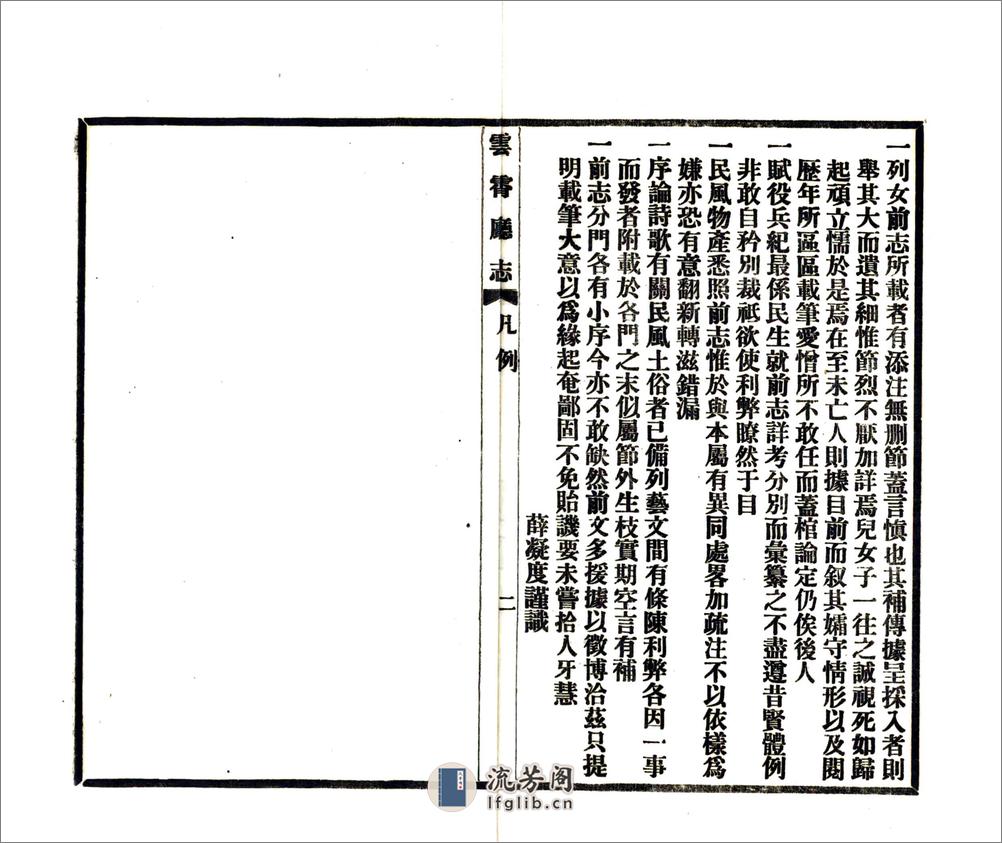 一列女前志所載者有添注無删節蓋言慎也其補傳據呈採入者則
舉其大而遺其細惟節烈不厭加詳焉兒女子一往之誠視死如歸
起頑立懦於是焉在至未亡人則據目前而叙其孀守情形以及閱
歴年所區區載筆愛憎所不敢任而蓋棺論定仍俟後人
一賦役兵紀最係民生就前志詳考分別而彙纂之不盡遵昔賢體例
非敢自矜別裁祗欲使利弊瞭然于目
一民風物產悉照前志惟於與本屬有異同處畧加疏注不以依樣爲
嫌亦恐有意翻新轉滋錯漏
一序論詩歌有關民風土俗者已備列藝文間有條陳利弊各因一事
而發者附載於各門之末似屬節外生枝實期空言有補
一前志分門各有小序今亦不敢缺然前文多援據以徵博洽茲只提
明載筆大意以爲緣起奄鄙固不免貽譏要未嘗拾人牙慧
薛凝度謹識
雲霄廳志 凡例 二
流芳阁
lfglib.cn